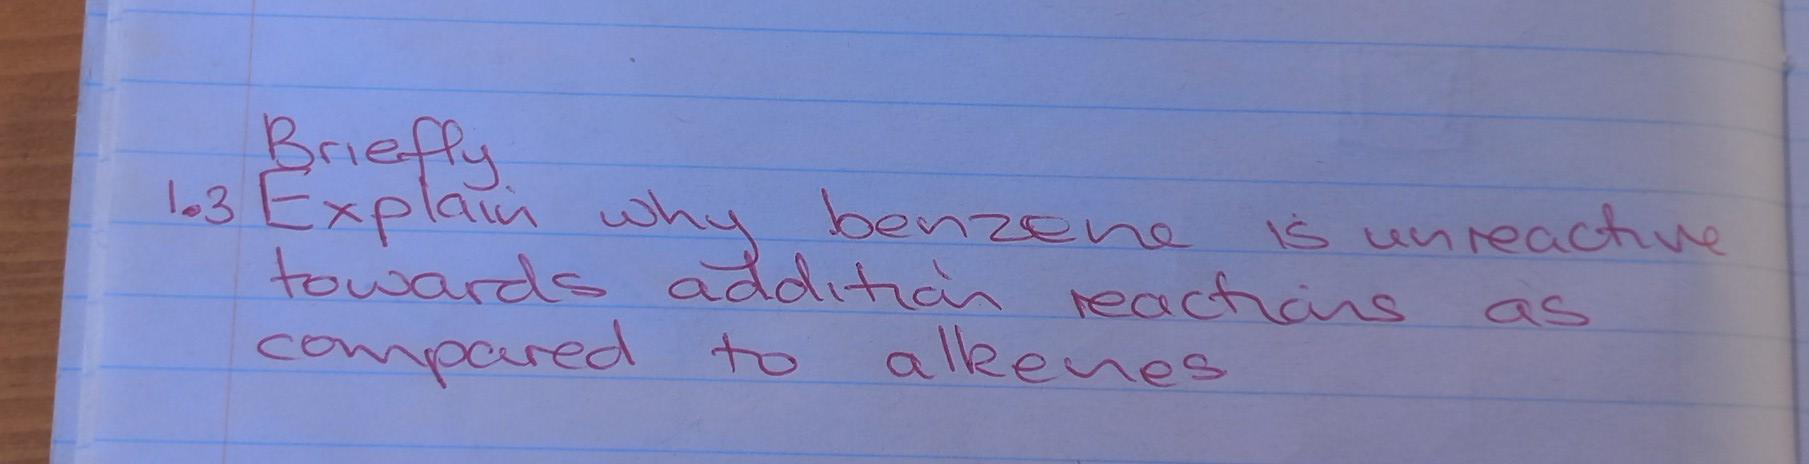 Briefly
1.3 Explain why benzene is unreactive
towards addition reactions as
compared to alkenes